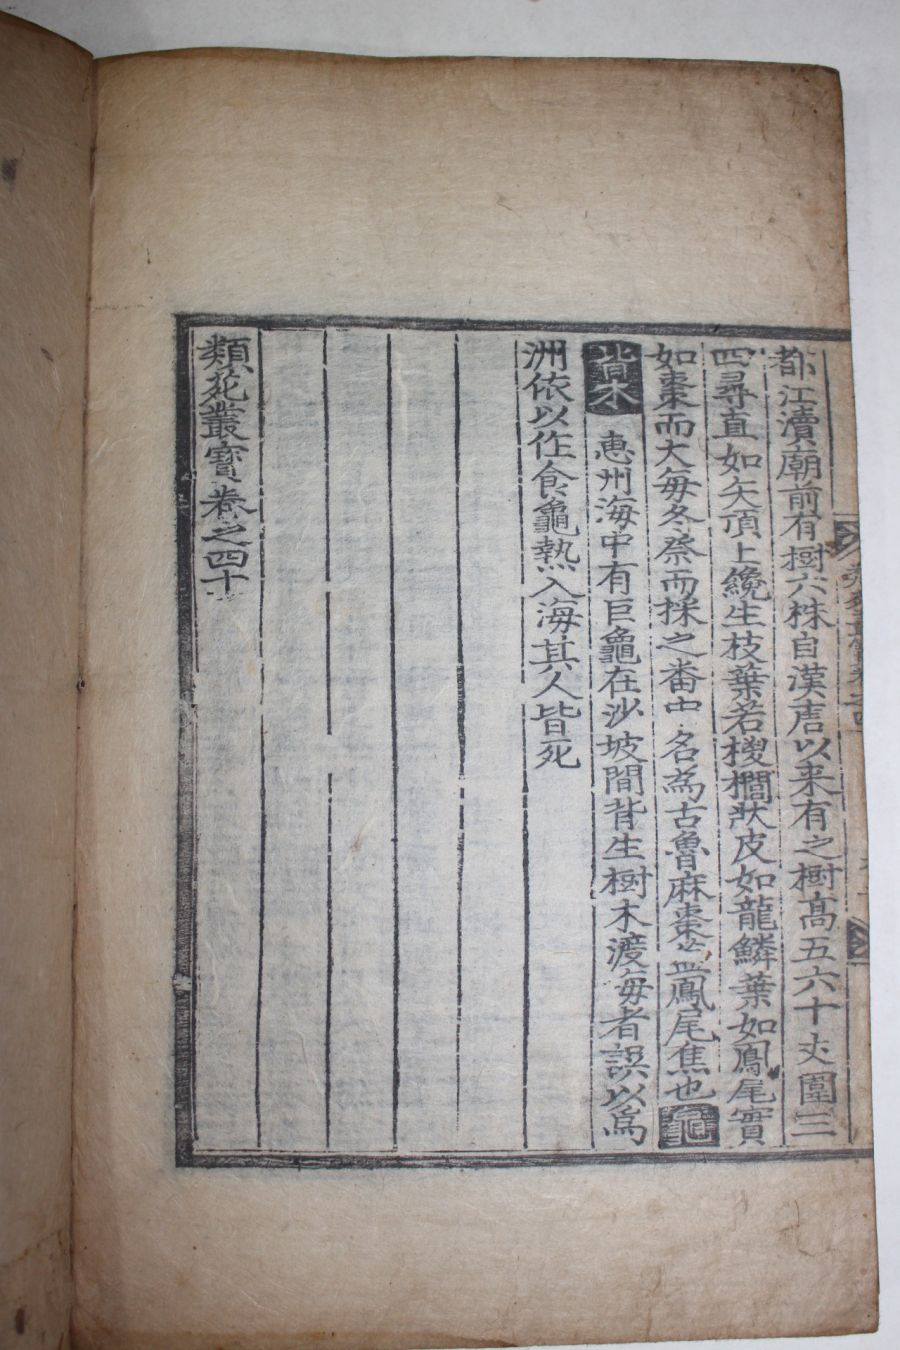 都江瀆廟前有樹六株自漢唐以来有之樹髙五六十丈圍三
四尋直如矢頂上纔生枝葉若椶櫚狀皮如龍鱗葉如鳳尾實
如棗而大每冬祭而採之番中名為古魯麻棗盖鳳尾焦也
背木 惠州海中有巨龜在沙坡間背生樹木渡海者誤以為
洲依以作食龜熱入海其人皆死
類苑叢寶卷之四十